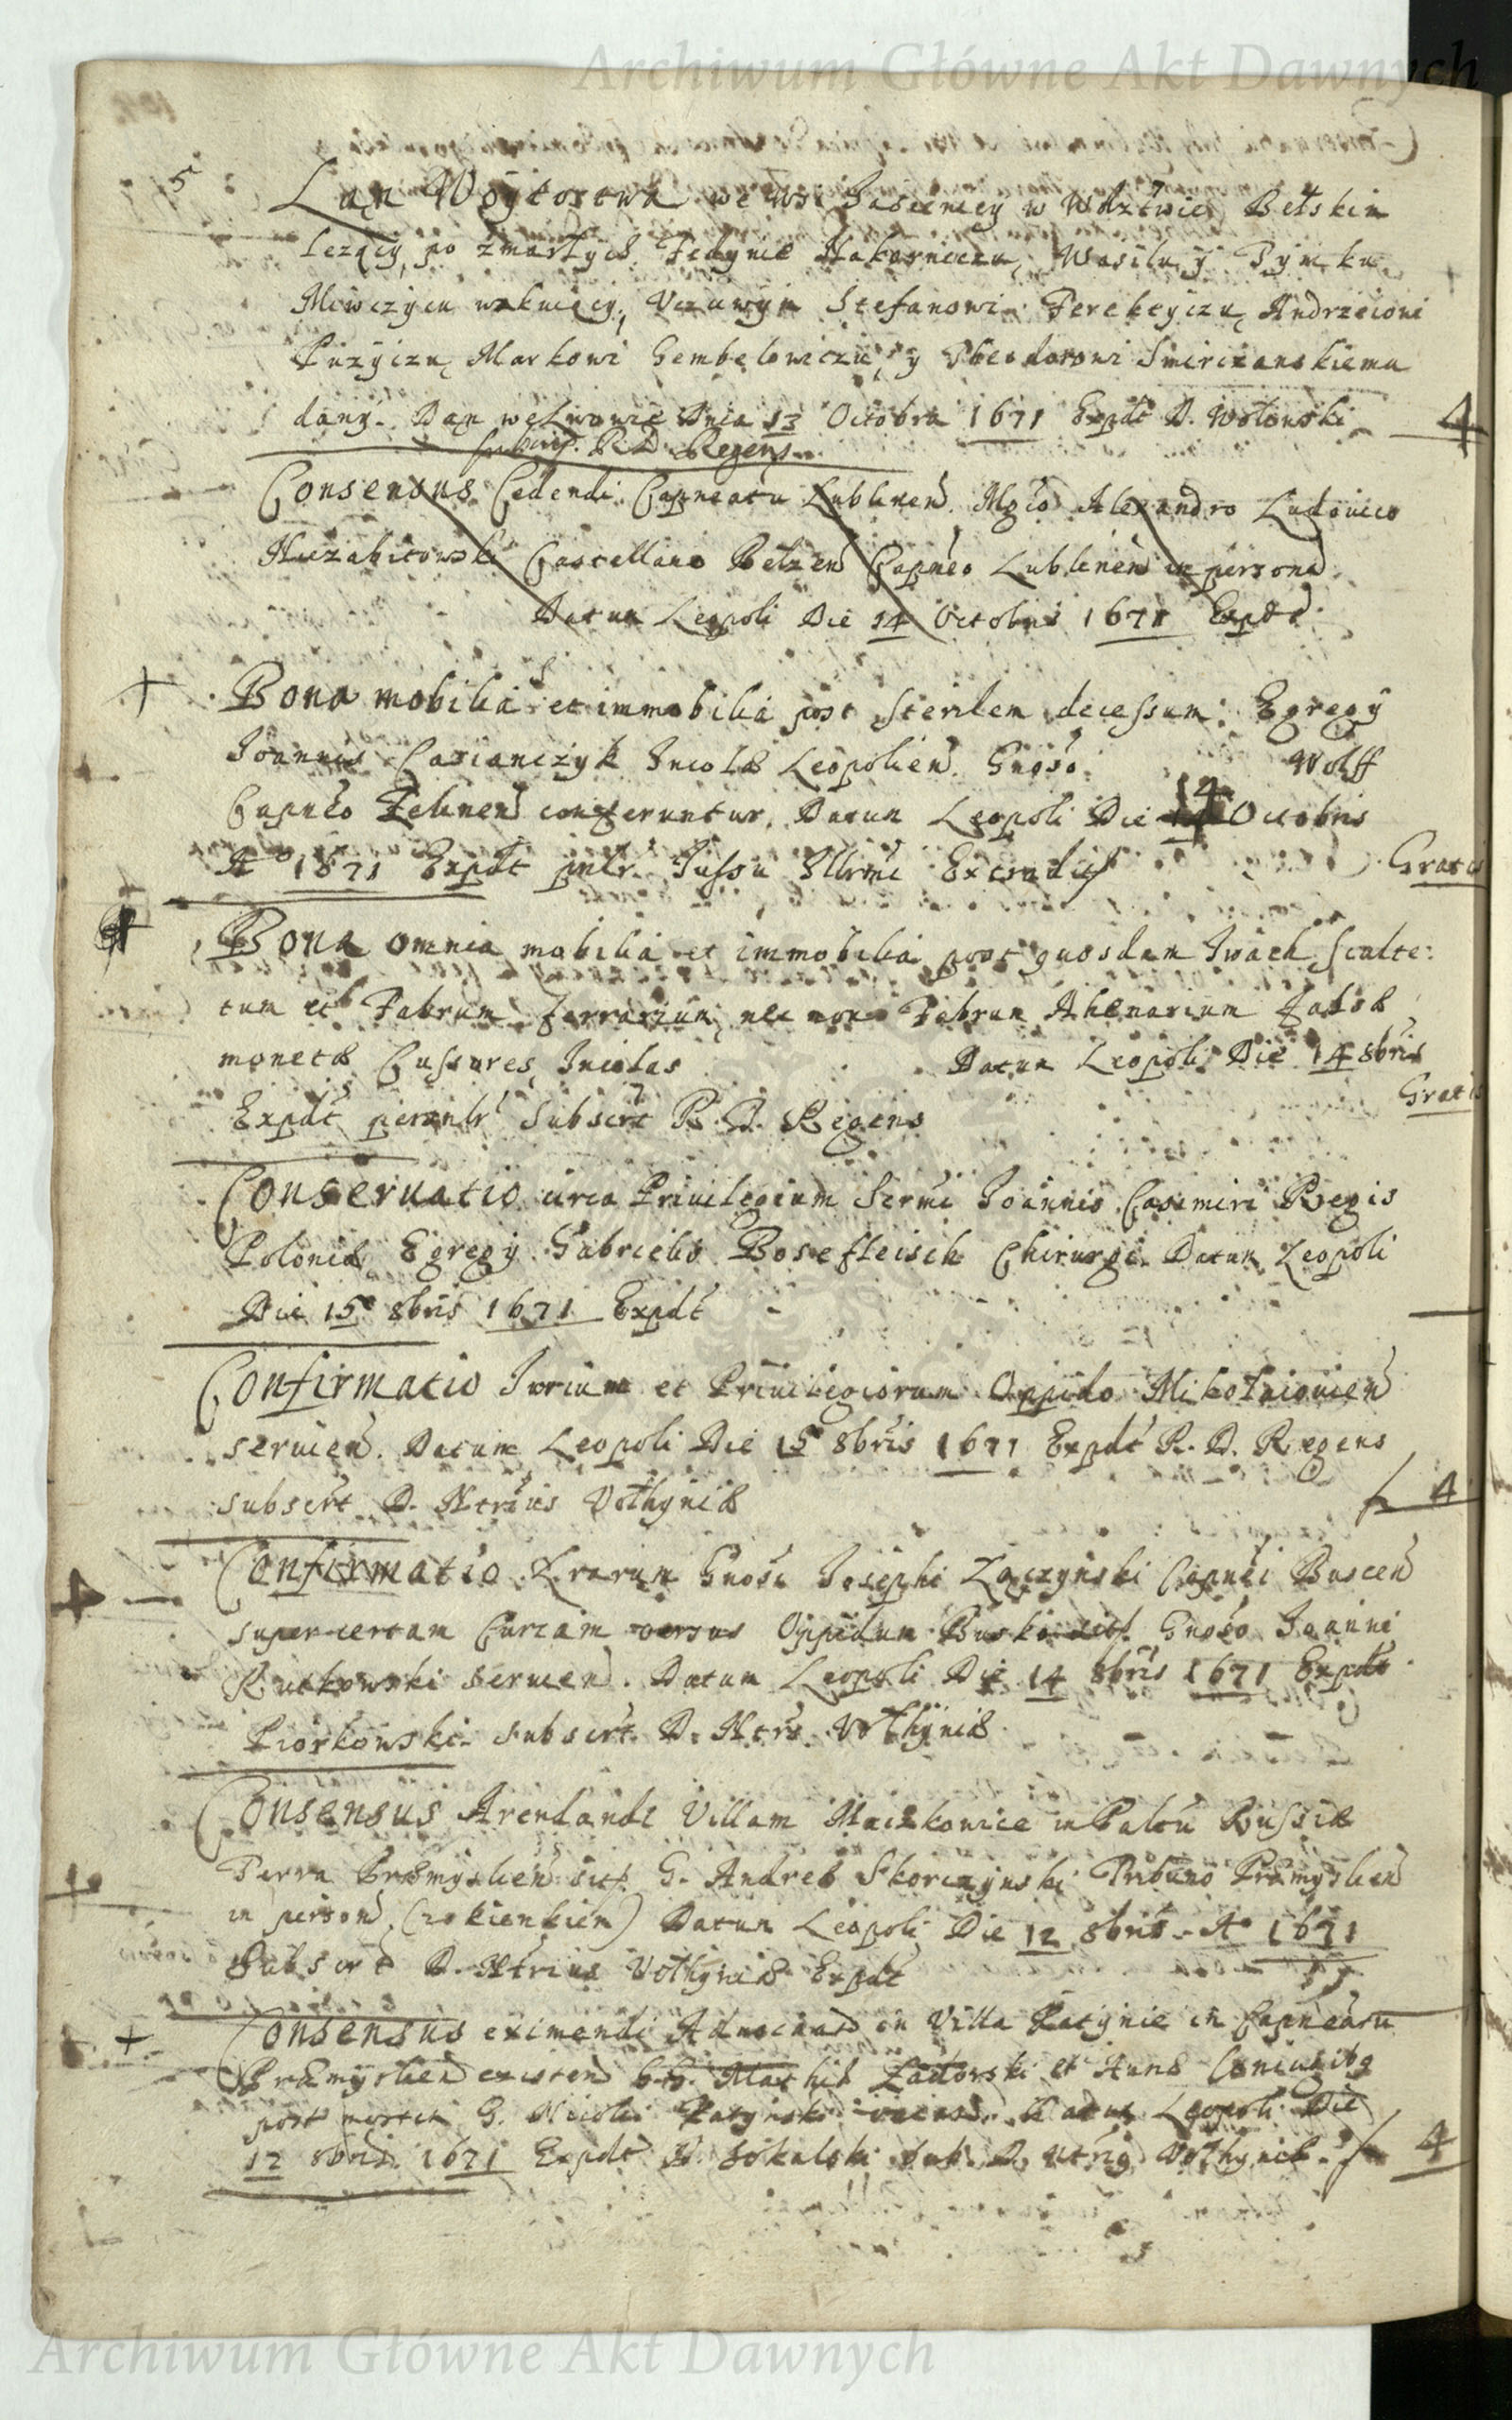 Archiwum Główne Akt Dawnych
5
Łan Woytostwa we wsi w Wdztwie Bełskim
lezący po zmarłych Fedynie Wasilu y Tymku
wakuiący, Stefanowi Ferekeyiczu Andrzeiowi
Puzyiczu Markowi Gembelowiczu, y Theodorowi
dany. Dan we Lwowie Dnia 13 Octobra 1671 Expdt D. Wołonski
4
subscrip. R. D. Regens
Consensus Cedendi Capneatu Lublinen Mgco Alexandro Ludovico
Niezabitowski Castellano Belzen Capneo Lublinen in persona
Datum Leopoli Die 14 Octobris 1671 Expdt
+ Bona mobilia et immobilia post sterilem decessum Egregy
Joannis Casianczyk Incolæ Leopolien. Gnoso Wolff
Capneo Felinen conferuntur. Datum Leopoli Die 14 Octobris
Ao 1671 Expdt Jussu Illrmi
Gratis
Bona omnia mobilia et immobilia post quosdam Iwach sculte:
tum et Fabrum ferrarium, nec non Fabrum Ahenarium falsæ
monetæ Cussores Incolas Datum Leopoli Die 14 8bris
Gratis
Expdt subscrt R. D. Regens
Conservatio circa Privilegium Sermi Joannis Casimiri Regis
Poloniæ Egregy Gabrielis Bosefleisch Chirurgi. Datum Leopoli
Die 15 8bris 1671 Expdt
Confirmatio Jurium et Privilegiorum Oppido Mikołaiowien
servien. Datum Leopoli Die 15 8bris 1671 Expdt R. D. Regens
subscrt D. Ntrius Vołhyniæ
4
Confirmatio Lrarum Gnosi Josephi Łączynski Capnei Buscen
super certam Curiam versus Oppidum Busko Gnoso Joanni
Rutkowski servien. Datum Leopoli Die 14 8bris 1671 Expdt
Piorkowski. subscrt D. Ntrs Vołhyniæ
Consensus Arendandi Villam Maizkowice in Paltu Russiæ
Terra Præmyslien G. Andreæ Skorczynski Tribuno Præmyslien
in person (zokienkien) Datum Leopoli Die 12 8bris Ao 1671
Subscrt D. Ntrius Vołhyniæ Expdt
+ Consensus eximendi in Villa Ratynie in Capneatu
Præmyslien existen et Annæ Coniugibg
post mortem G. Datum Leopoli Die
12 8bris 1671 Expdt D. Sokalski Sub. D. Ntrig Vołhyniæ
4
Archiwum Główne Akt Dawnych